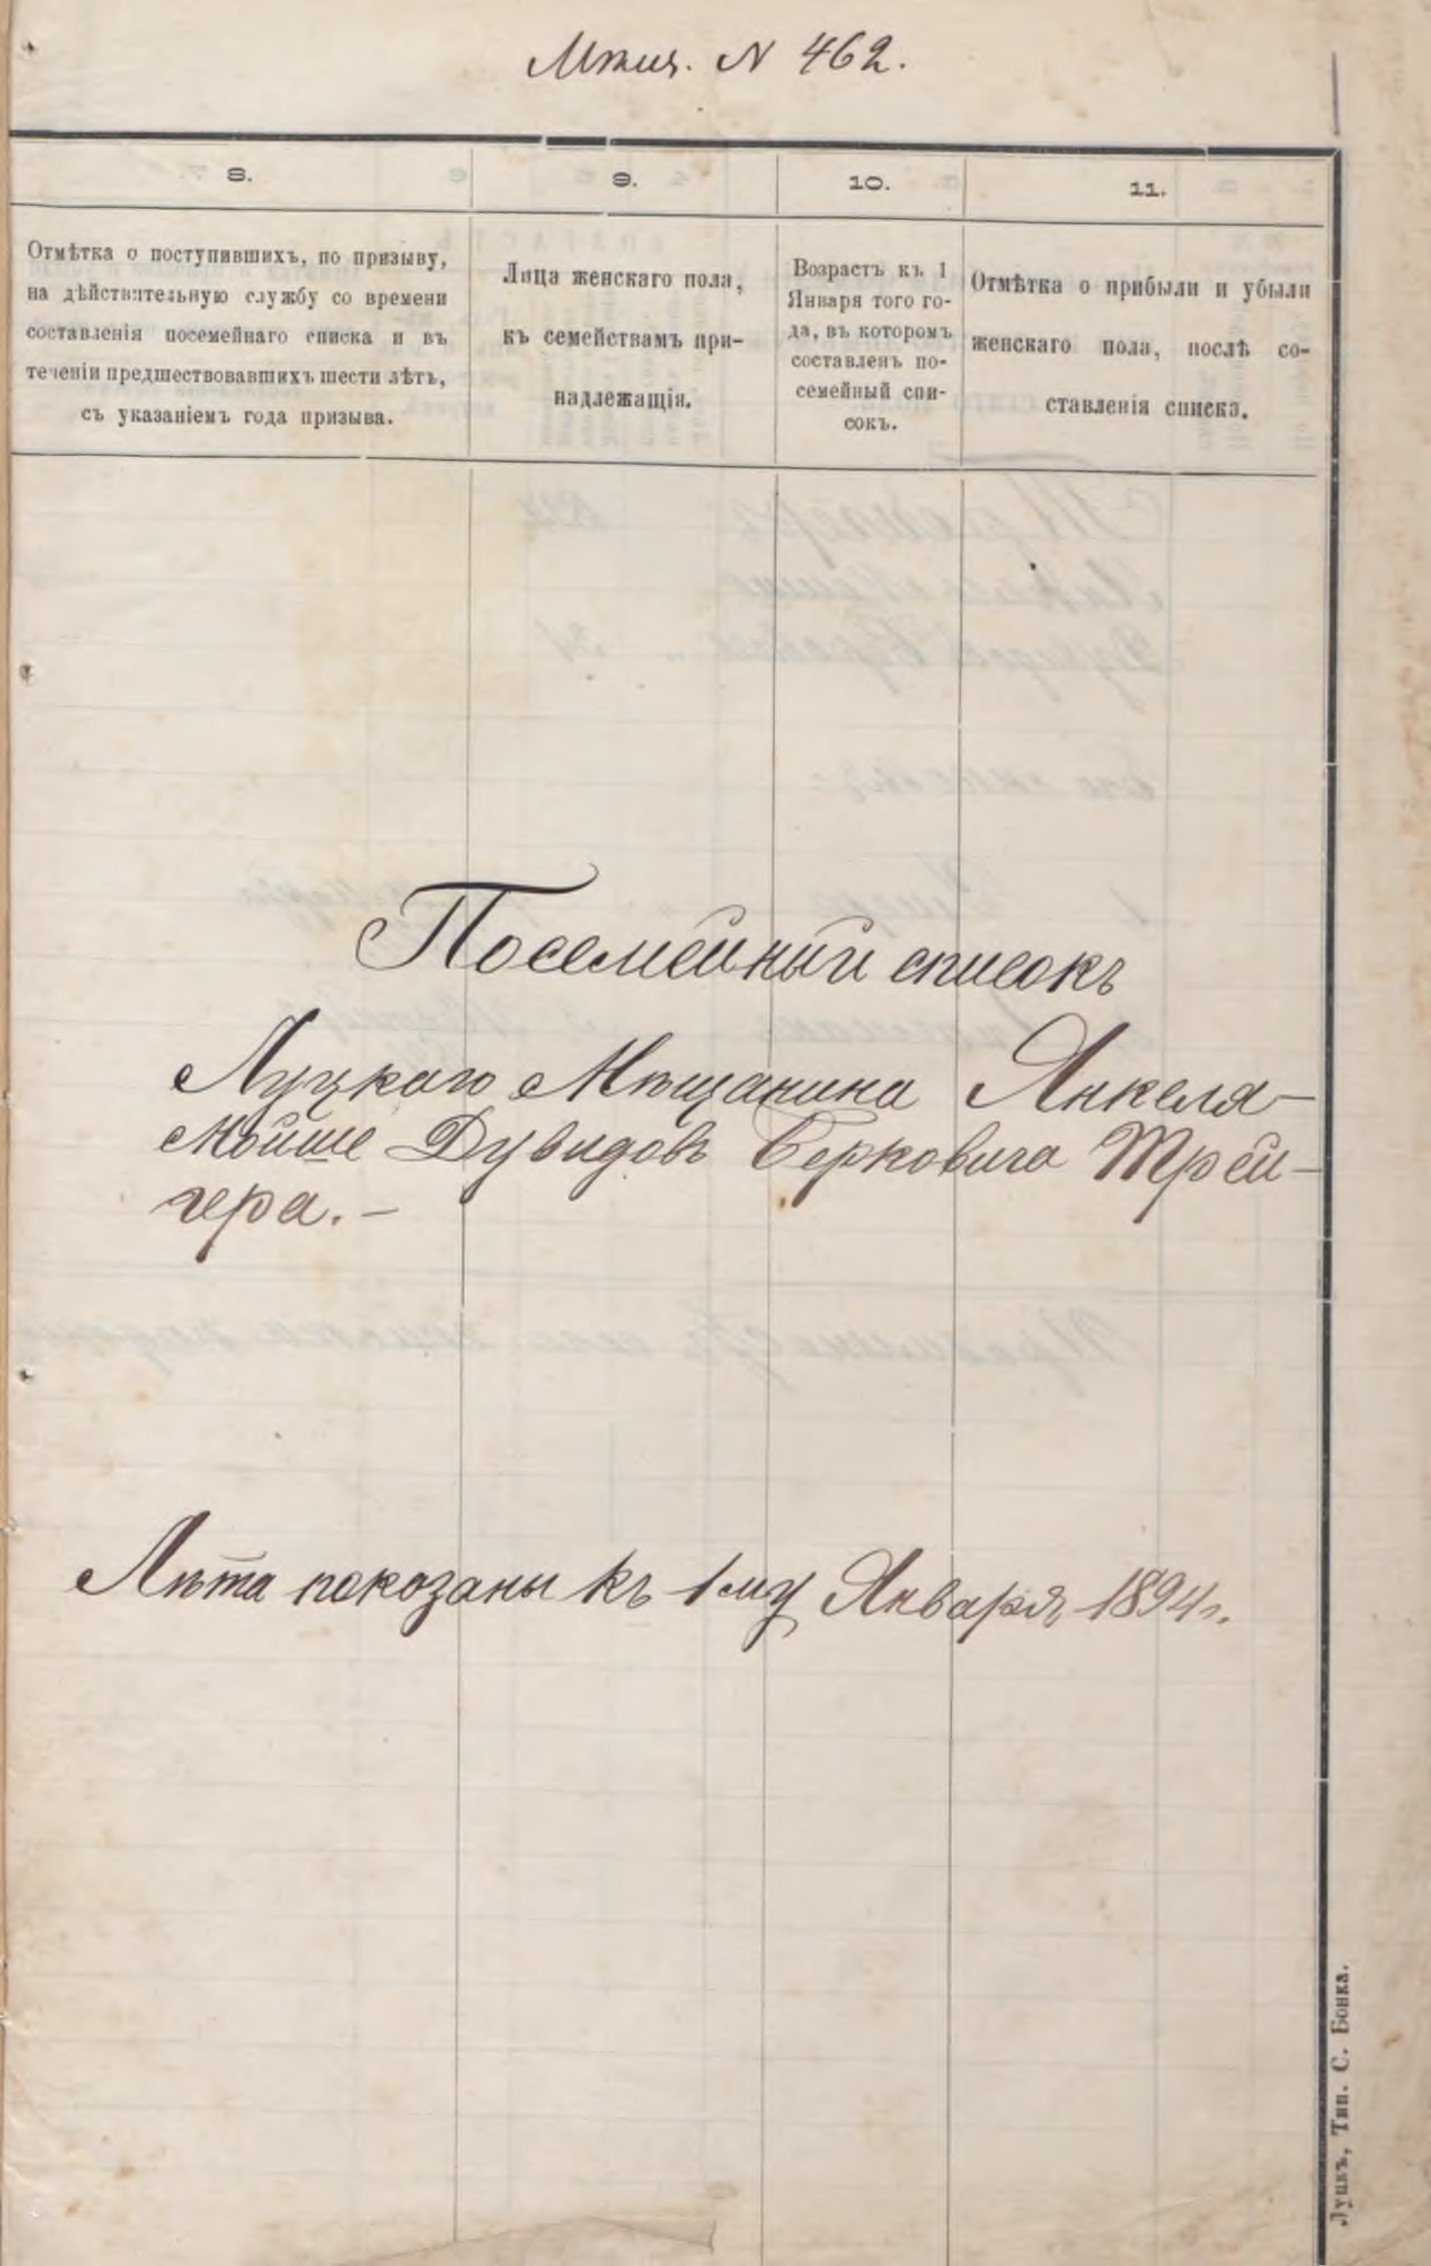 Мѣщ. N 462.
8.
9.
10.
11.
Отмѣтка о поступившихъ, по призыву,
на дѣйствительную службу со времени
составленія посемейнаго списка и въ
теченіи предшествовавшихъ шести лѣтъ,
съ указаніемъ года призыва.
Лица женскаго пола,
къ семействамъ при-
надлежащія.
Возрастъ къ 1
Января того го-
да, въ которомъ
составленъ по-
семейный спи-
сокъ.
Отмѣтка о прибыли и убыли
женскаго пола, послѣ со-
ставленія списка.
Посемейный списокъ
Луцкаго Мѣщанина Янкеля-
Мойше Дувидов Берковича Трей-
гера. -
Лѣта показаны къ 1му Января 1894 г.
Луцкъ, Тип. С. Бонка.